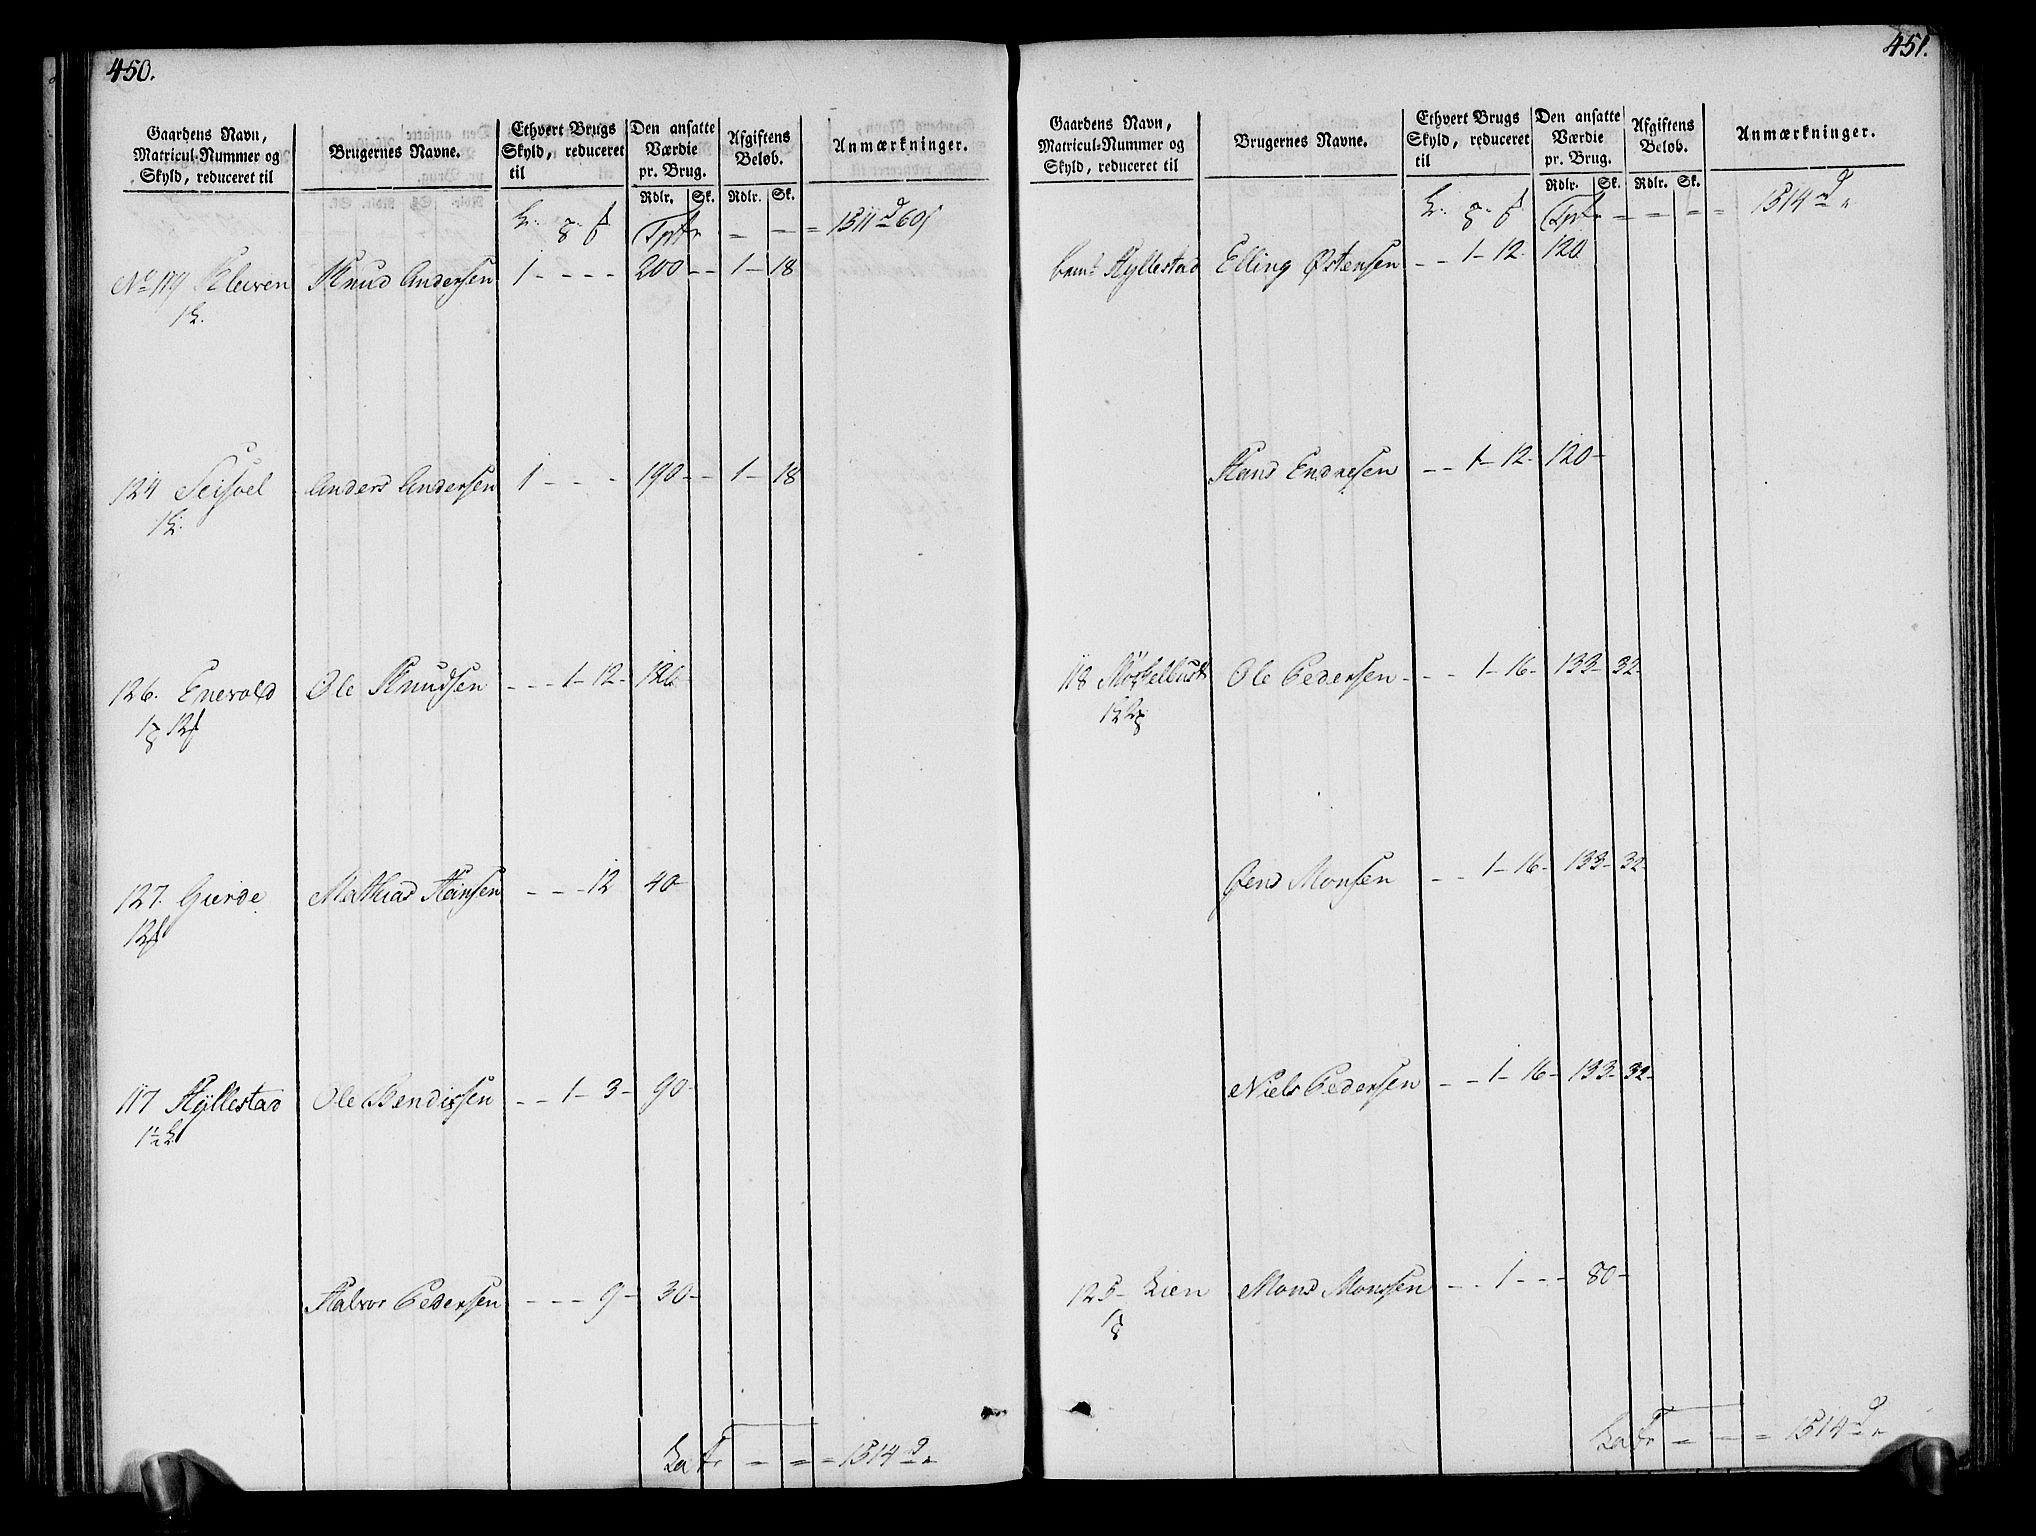 450.
Gaardens Navn, Matricul-Nummer og Skyld, reduceret til
Brugernes Navne.
Ethvert Brugs Skyld, reduceret til
Den ansatte Værdie pr. Brug.
Afgiftens Beløb.
Anmærkninger.
Rdlr. Sk. Rdlr. Sk.
Tptr - - = 1311 d 60 s
No 119 Kleiven Knud Andersen 1 - - - - 200 - - 1 - 18
1 L.
124 Seisvel Anders Andersen 1 - - - 190 - - 1 - 18
1 L.
126. Enevold Ole Knudsen - - - 1 - 12 - 126
12
127. Gierde Mathias Hansen - - - 12 40 -
12
117 Hyllestad Ole Bendixsen - - 1 - 3 - 90 -
1½ L.
Halvor Pedersen - - - 9 - 30 -
Lat - = = 1314 d
451.
Gaardens Navn, Matricul-Nummer og Skyld, reduceret til
Brugernes Navne.
Ethvert Brugs Skyld, reduceret til
Den ansatte Værdie pr. Brug.
Afgiftens Beløb.
Anmærkninger.
Rdlr. Sk. Rdlr. Sk.
Tptr = - - = 1314 d
Hyllestad Elling Østensen - - 1 - 12. 120
Hans Endresen - - 1 - 12 - 120 -
118 Ole Pedersen - - - 1 - 16 - 133 - 32 -
Jens Monsen - - 1 - 16 - 133 - 32 -
Niels Pedersen - - 1 - 16 - 133 - 32 -
125 - Lien Mons Monssen - - 1 - - - 80 -
Latr = - = 1314 d